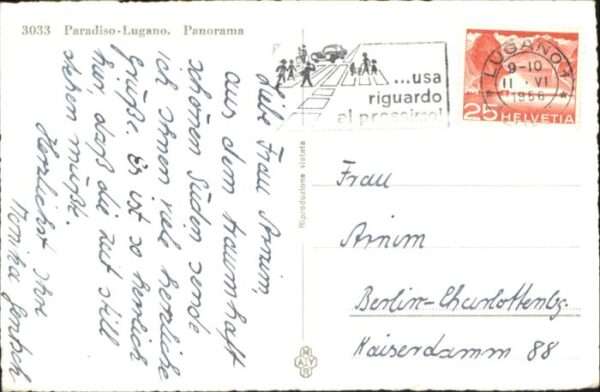 3033 Paradiso-Lugano. Panorama
Liebe Frau Arnim,
aus dem traumhaft
schönen Süden sende
ich Ihnen viele herzliche
Grüße. Es ist so herrlich
hier, daß die Zeit still
stehen müßte.
Herzlichst Ihre
Monika
Riproduzione vietata
MAYR
...usa
riguardo
al prossimo!
LUGANO 1
9-10
11. VI
1956
25 HELVETIA
Frau
Arnim
Berlin-Charlottenbg.
Kaiserdamm 88